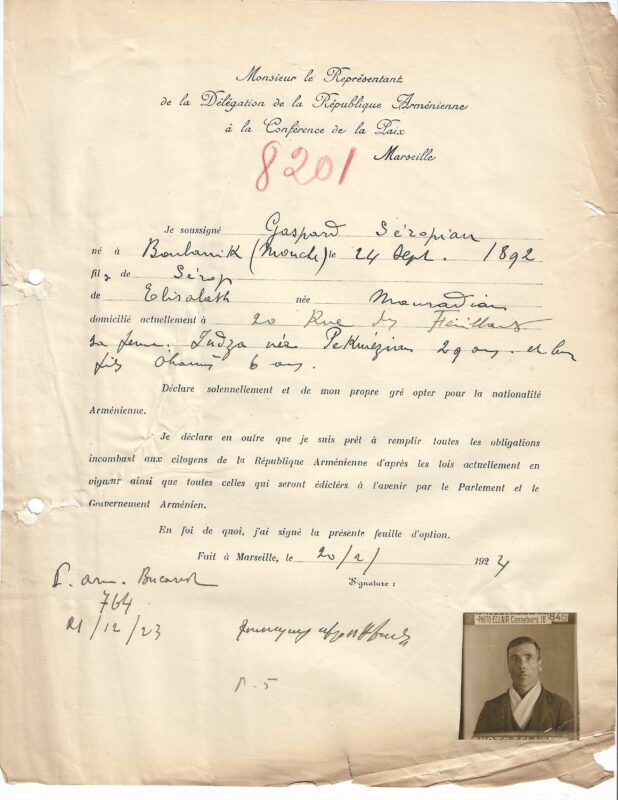 Monsieur le Représentant
de la Délégation de la République Arménienne
à la Conférence de la Paix
Marseille
8201
Je soussigné Gaspard Séropian
né à Boulanik (Mouche) le 24 Sept. 1892
fils de Sérop
de Elisabeth née Mouradian
domicilié actuellement à 20 Rue des Feuillants
sa femme Indza née Pekmézian 29 ans. et leur
fils Ohannès 6 ans.
Déclare solennellement et de mon propre gré opter pour la nationalité
Arménienne.
Je déclare en outre que je suis prêt à remplir toutes les obligations
incombant aux citoyens de la République Arménienne d'après les lois actuellement en
vigueur ainsi que toutes celles qui seront édictées à l'avenir par le Parlement et le
Gouvernement Arménien.
En foi de quoi, j'ai signé la présente feuille d'option.
Fait à Marseille, le 20/2/ 1924
Signature :
P. arm. Bucarest
764
21/12/23
P. 5
PHOTO ECLAIR Cannebière 16 845
PHOTO ECLAIR